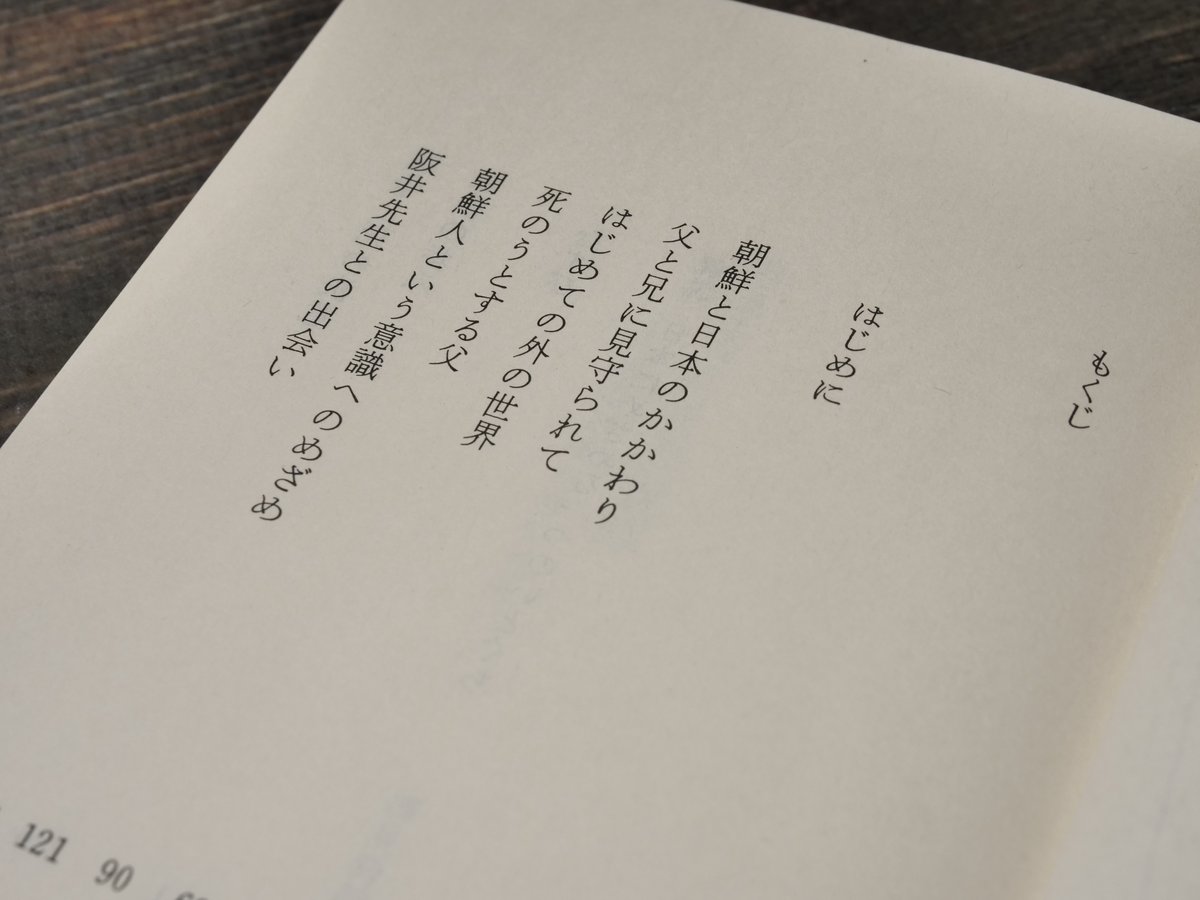 もくじ
はじめに
朝鮮と日本のかかわり
父と兄に見守られて
はじめての外の世界
死のうとする父
朝鮮人という意識へのめざめ
阪井先生との出会い
90
121